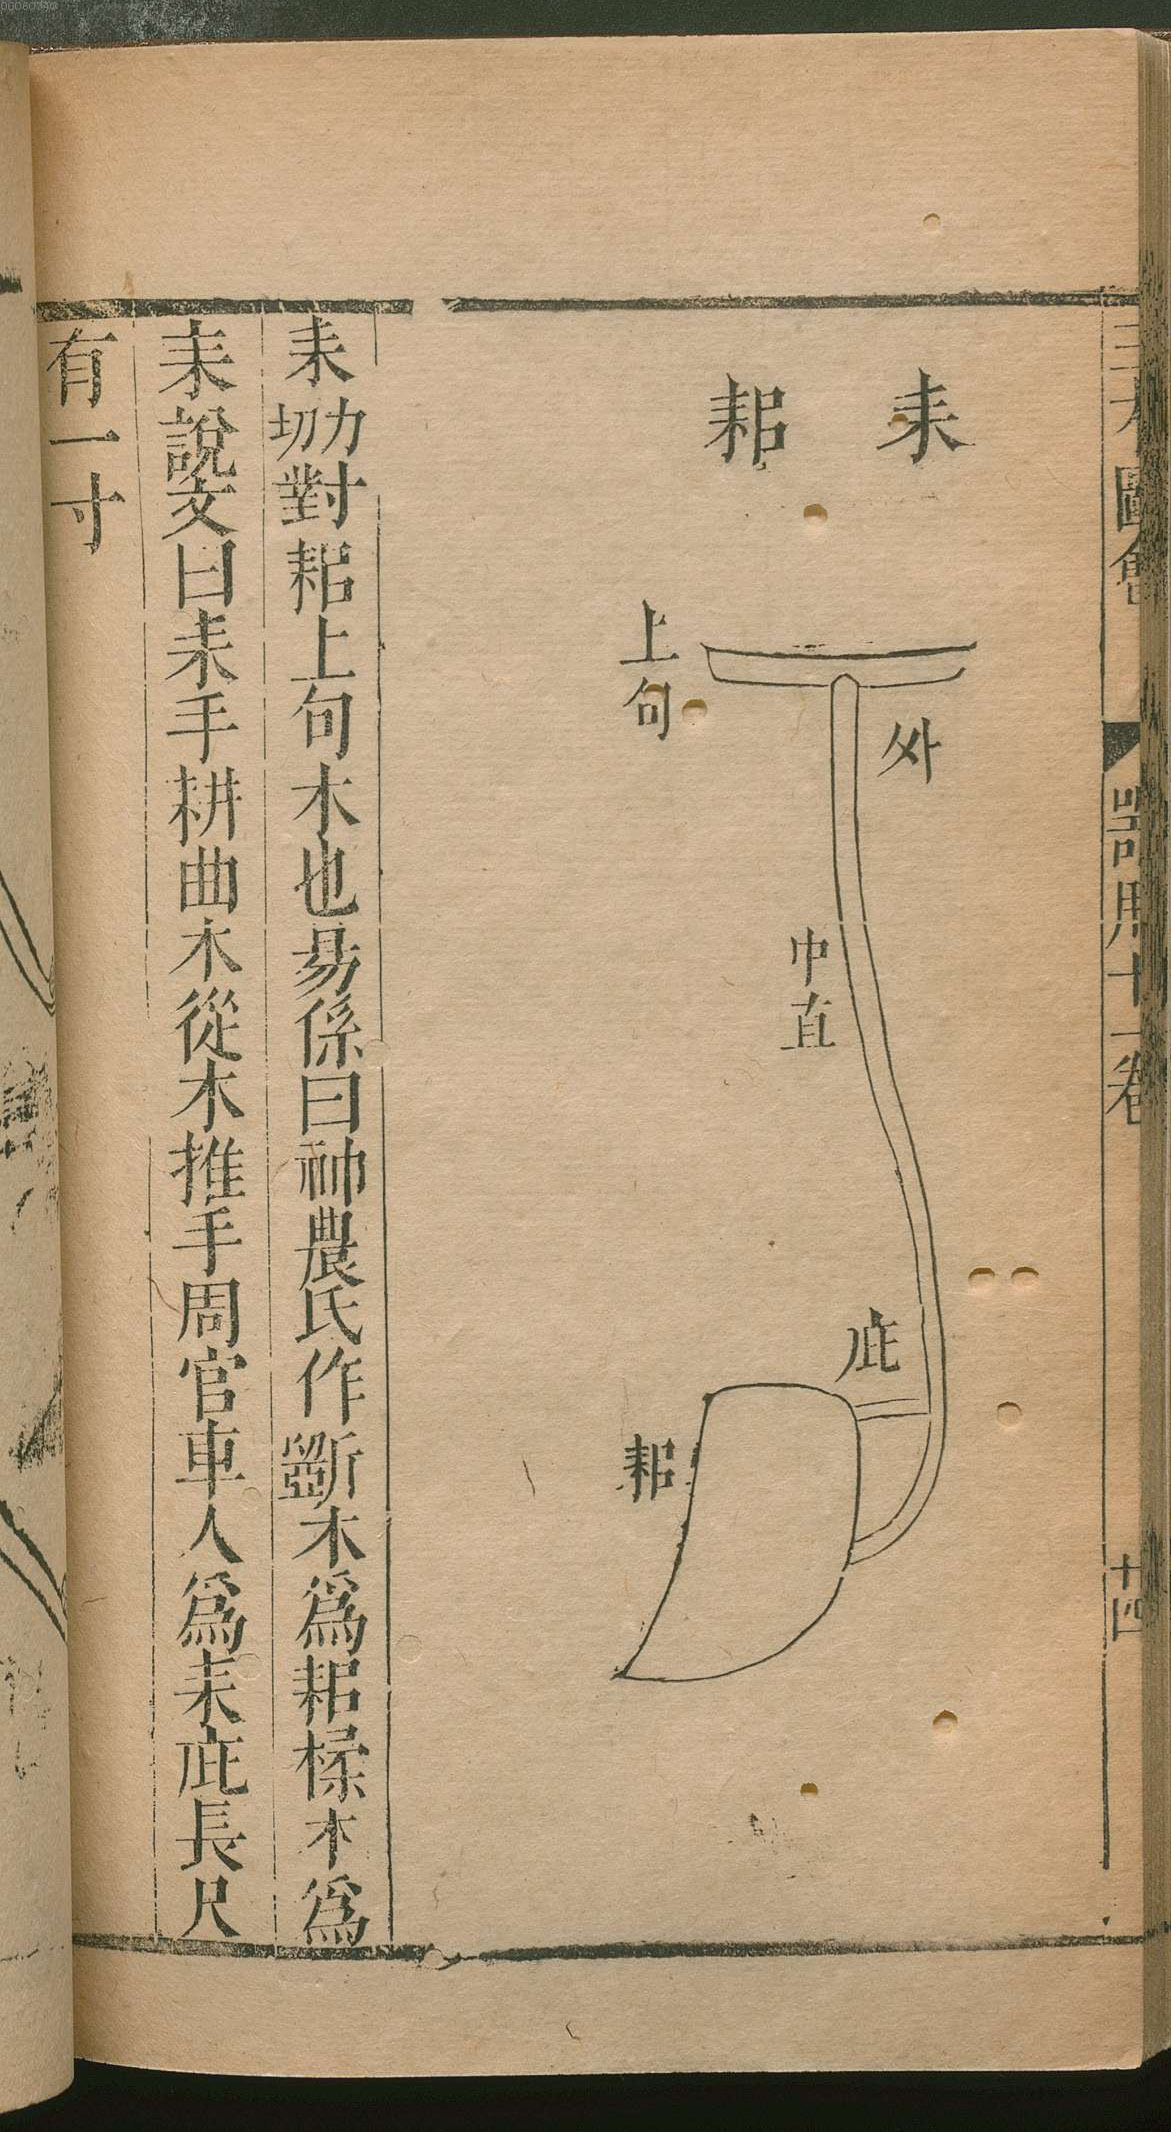 三才圖會
器用十一卷
十四
耒
耜
上句
外
中直
庇
耜
耒力對切耜上句木也易係曰神農氏作斲木為耜楺木為
耒說文曰耒手耕曲木從木推手周官車人為耒庇長尺
有一寸